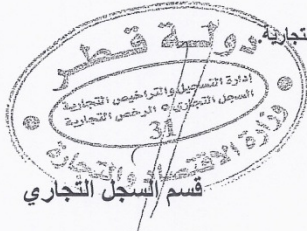 تجارية
دولة قطر
إدارة التسجيل والتراخيص التجارية
السجل التجاري و الرخص التجارية
31
وزارة الاقتصاد والتجارة
قسم السجل التجاري